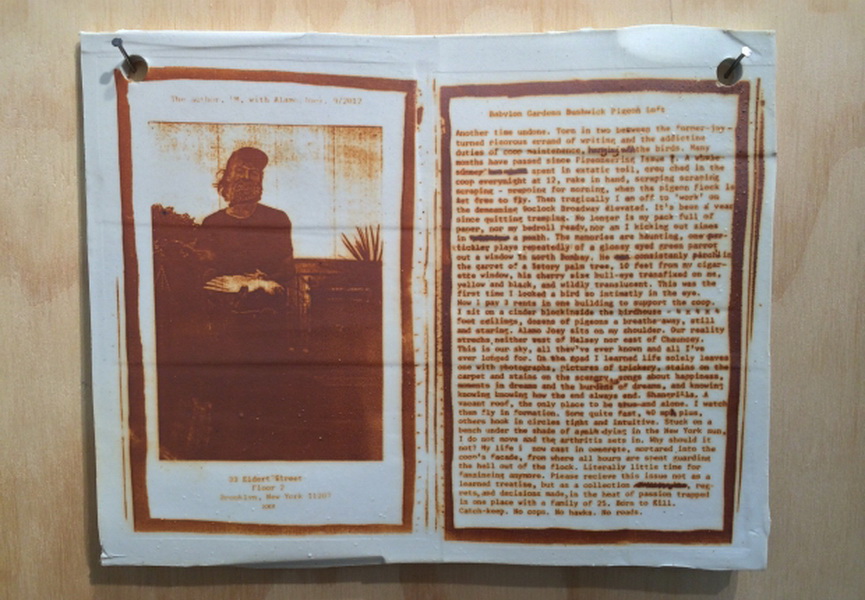 The author, with Alamo Joey, 9/2012
Eldert Street
Floor 2
Brooklyn, New York 11207
xxx
Babylon Gardens Bushwick Pigeon Loft
Another time undone. Torn in two between the former-joy-
turned ruinous errand of writing and the addictive
duties of coop maintenance, the birds. Many
months have passed since Issue A whole
spent in estatic toil, crouched in the
coop everynight at 12, rake in hand, scraping scraping
scraping - weapoing for morning, when the pigeon flock is
set free to fly. Then tragically I am off to 'work' on
the damned Gonlock Broadway Bluesteel. It's been a year
since quitting tramping. No longer is my pack full of
paper, nor my bedroll ready, nor am I kicking out zines
in a The memories are haunting, one par-
tickley plays repeatedly of a glossy eyed green parrot
out a window in north Bombay. He was consistantly perch in
the garret of a lotery palm tree, so feet from my cigar-
rette window, his diamante bull-eye transfixed on me
yellow and black, and wildly translucent. This was the
first time I looked a bird so intimatly in the eye.
Now I pay 3 rents on one building to support the coop.
I sit on a cinder blockinside the birdhouse
foot ceilings, dozens of pigeons a breathe-away, still
and staring. Alamo Joey sits on my shoulder. Our reality
streches neither west of Halsey nor east of Chauncey.
This is our sky, all they've ever known and all I've
ever longed for. On the road I learned life solely leaves
one with photographs, pictures of trickery, stains on the
carpet and stains on the songs about happiness,
moments in dreams and the of dreams, and knowing
knowing knowing how the end always end. Shangrilla. A
vacant roof, the only place to be and alone. I watch
them fly in formation. Some quite fast, 40 mph plus,
others hook in circles tight and intuitive. Stuck on a
bench under the shade of dying in the New York sun,
I do not move and the arthritis sets in. Why should it
not? My life is now cast in concrete, mortared into the
coop's facade, from where all hours are spent guarding
the hell out of the flock. Literally little time for
anymore. Please recieve this issue not as a
learned treatise, but as a collection reg-
rets, and decisions made, in the heat of passion trapped
in one place with a family of 25. Born to Kill.
Catch-keep. No cops. No hawks. No roads.